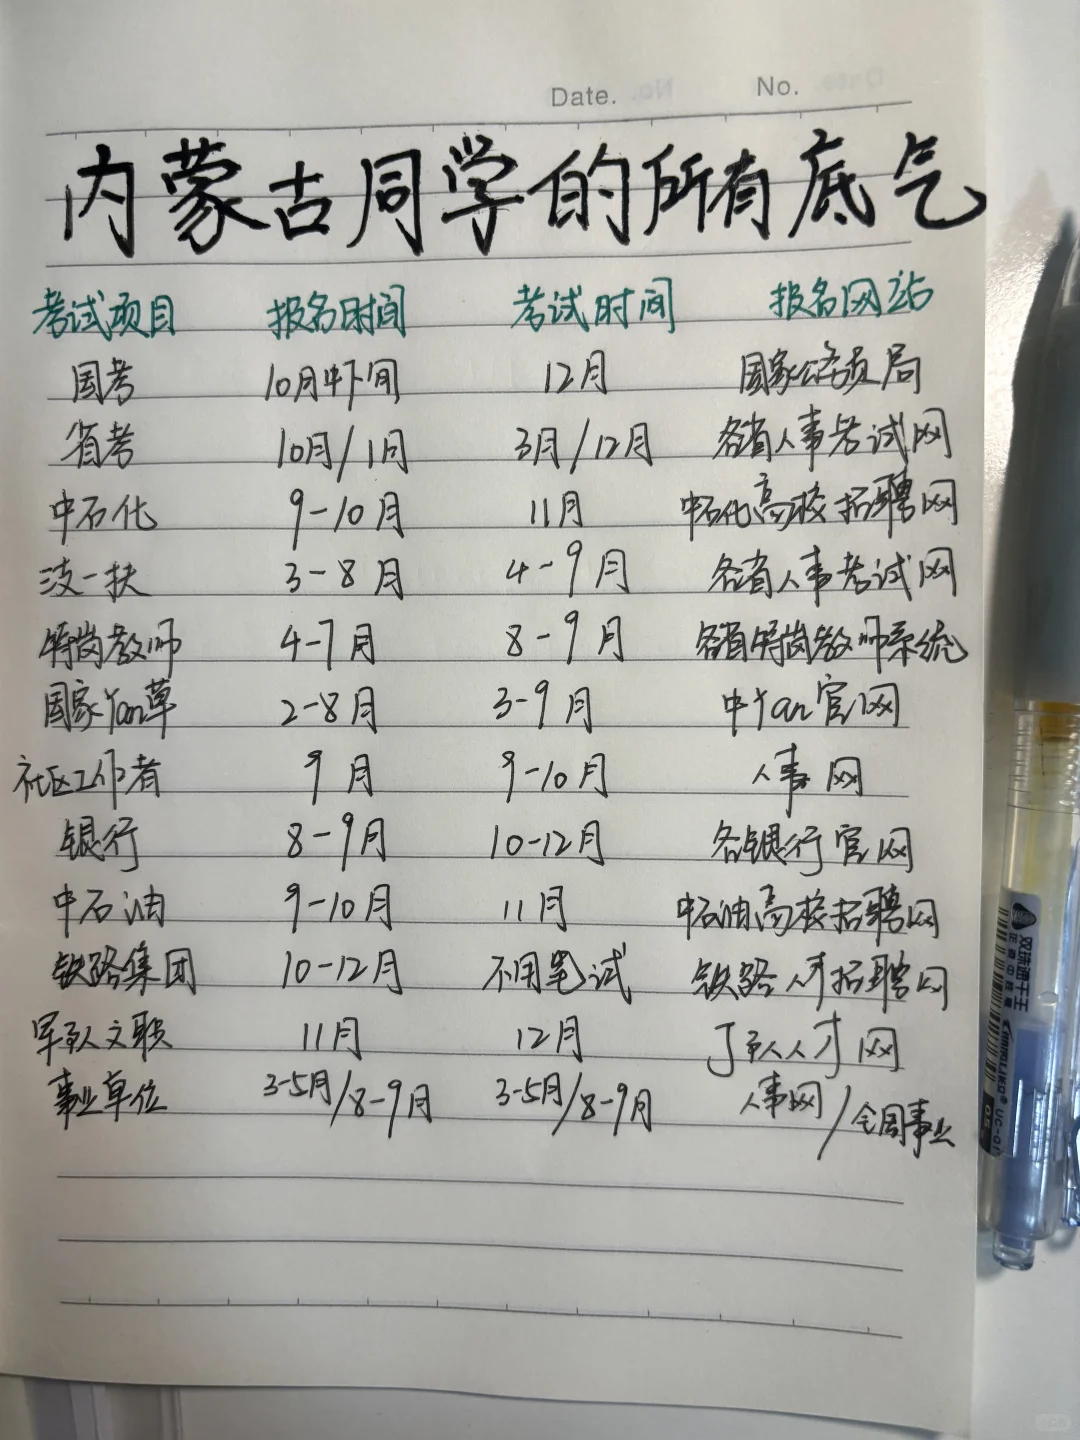 Date. No.
内蒙古同学的所有底气
考试项目 报名时间 考试时间 报名网站
国考 10月中下旬 12月 国家公务员局
省考 10月/1月 3月/12月 各省人事考试网
中石化 9-10月 11月 中石化高校招聘网
三支一扶 3-8月 4-9月 各省人事考试网
特岗教师 4-7月 8-9月 各省特岗教师系统
国家yan草 2-8月 3-9月 中yan官网
社区工作者 9月 9-10月 人事网
银行 8-9月 10-12月 各银行官网
中石油 9-10月 11月 中石油高校招聘网
铁路集团 10-12月 不用笔试 铁路人才招聘网
军队文职 11月 12月 J队人才网
事业单位 3-5月/8-9月 3-5月/8-9月 人事网/全国事业
双珠通千王
0.5